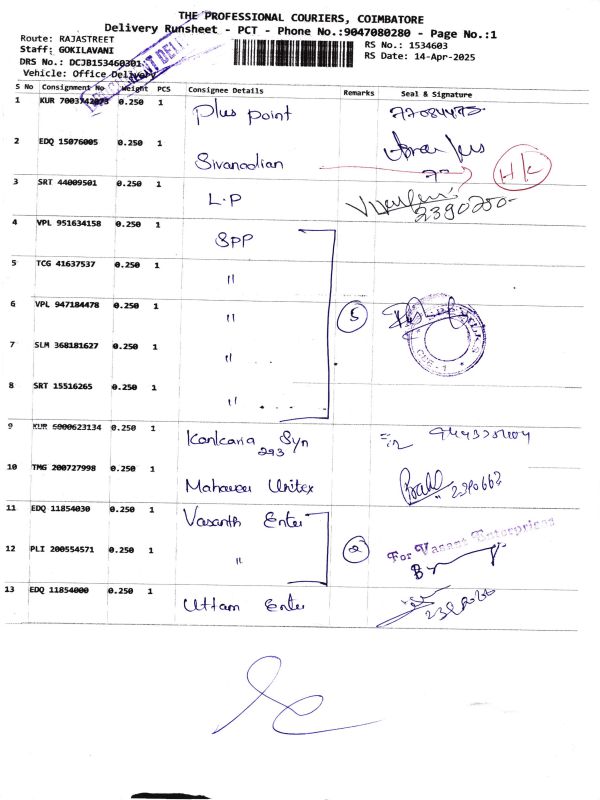 THE PROFESSIONAL COURIERS, COIMBATORE
Delivery Runsheet - PCT - Phone No.:9047080280 - Page No.:1
Route: RAJASTREET
RS No.: 1534603
Staff: GOKILAVANI
RS Date: 14-Apr-2025
DRS No.: DCJB153460301
Vehicle: Office Delivery
S No Consignment No Weight PCS Consignee Details Remarks Seal & Signature
1 KUR 7003742073 0.250 1 Plus point
2 EDQ 15076005 0.250 1 Sivanadian HK
3 SRT 44009501 0.250 1 L.P 2390250
4 VPL 951634158 0.250 1 SPP
5 TCG 41637537 0.250 1 "
6 VPL 947184478 0.250 1 " 5
7 SLM 368181627 0.250 1 "
8 SRT 15516265 0.250 1 "
9 KUR 5000623134 0.250 1 Kankaria Syn
293
10 TMG 200727998 0.250 1 Mahaveer Unitex 2390662
11 EDQ 11854030 0.250 1 Vasanth Enter
For Vasant Enterprises
12 PLI 200554571 0.250 1 " 2
13 EDQ 11854000 0.250 1 Uttam Enter